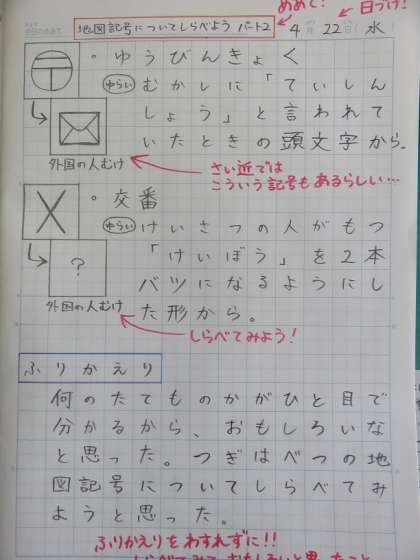 めあて!
日づけ!
地図記号についてしらべよう パート2
4月22日(水
・ゆうびんきょく
ゆらい むかしに「ていしん
しょう」と言われて
いたときの頭文字から。
外国の人むけ
さい近では
こういう記号もあるらしい…
・交番
ゆらい けいさつの人がもつ
「けいぼう」を2本
バツになるようにし
た形から。
?
外国の人むけ
しらべてみよう!
ふりかえり
何のたてものかがひと目で
分かるから、おもしろいな
と思った。つぎはべつの地
図記号についてしらべてみ
ようと思った。
ふりかえりをわすれずに!!